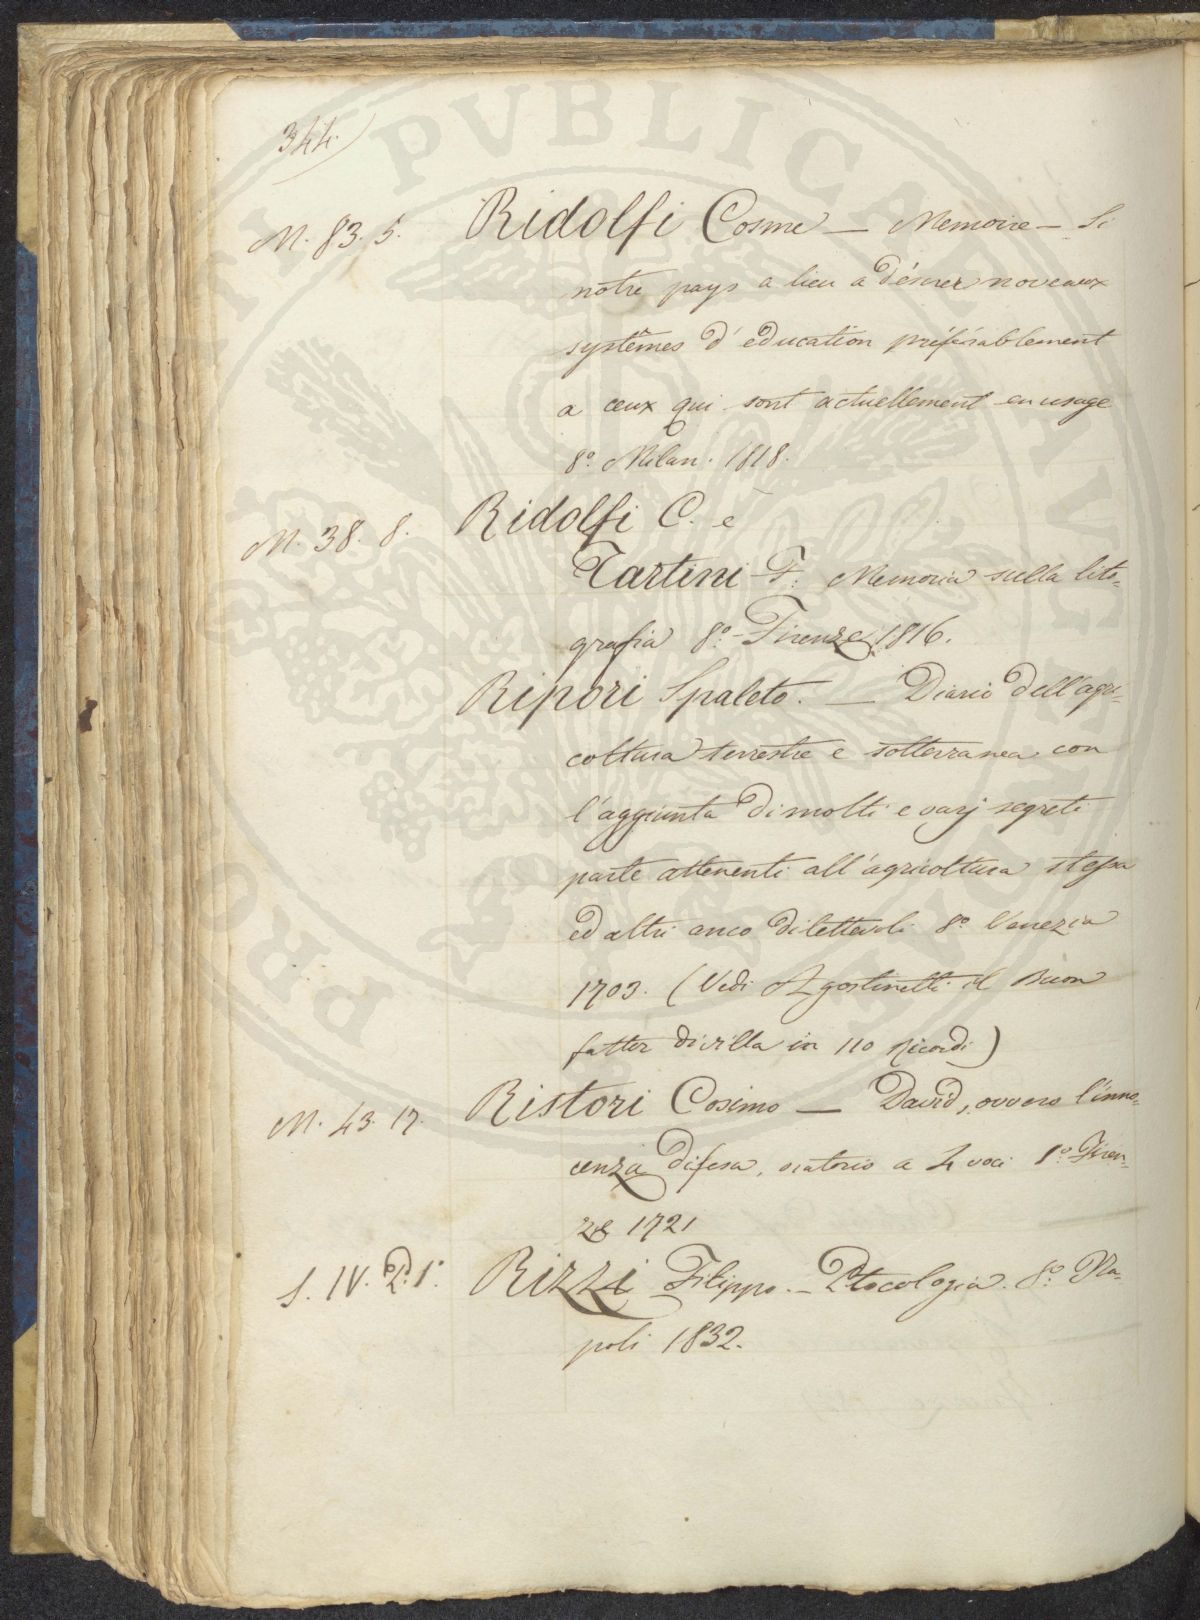 344.
M. 83. 5. Ridolfi Cosme — Memoire — Si
notre pays a lieu a désirer noveaux
systêmes d'éducation préférablement
a ceux qui sont actuellement en usage
8.º Milan. 1818.
M. 38. 8. Ridolfi C. è
Tartini F: Memoria sulla lito-
grafia 8.º Firenze 1816.
Ripori Spaleto. — Diario dell'agri-
coltura terrestre e sotterranea con
l'aggiunta di molti e varj segreti
parte attenenti all'agricoltura stessa
ed altri anco dilettevoli 8.º Venezia
1703. (Vedi Agostinetti il Buon
fattor di villa in 110 ricordi)
M. 43. 17. Ristori Cosimo — David, ovvero l'inno-
cenza difesa, oratorio a 4 voci 8.º Firen-
ze 1721
S. IV. 2. 1. Rizzi Filippo. — Ptocologia. 8.º Na-
poli 1832.
PROSPERITATI PVBLICAE AVGENDAE